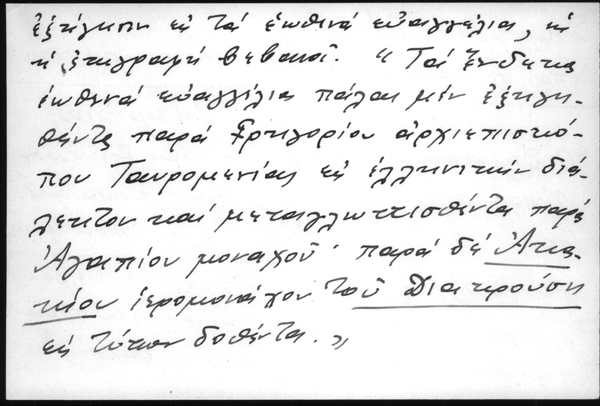 ἐξήγησιν εἰς τά ἑωθινά εὐαγγέλια, ὡς
ἡ ἐπιγραφή βεβαιοῖ. "Τά ἕνδεκα
ἑωθινά εὐαγγέλια πάλαι μέν ἐξηγη-
θέντα παρά Γρηγορίου ἀρχιεπισκό-
που Ταυρομενίας εἰς ἑλληνικήν διά-
λεκτον καί μεταγλωττισθέντα παρά
Ἀγαπίου μοναχοῦ· παρά δέ Ἀκα-
κίου ἱερομονάχου τοῦ Διακρούση
εἰς τύπον δοθέντα."